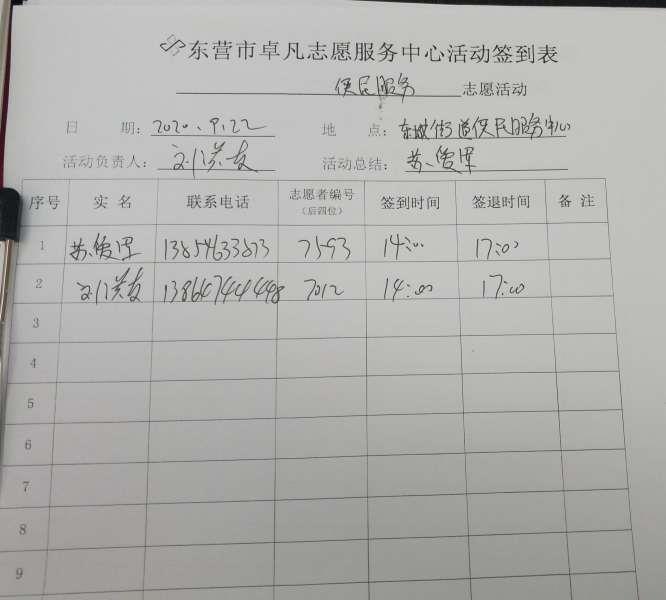 东营市卓凡志愿服务中心活动签到表
便民服务 志愿活动
日 期: 2020.9.22 地 点: 东城街道便民服务中心
活动负责人: 活动总结: 苏
序号 实 名 联系电话 志愿者编号 签到时间 签退时间 备 注
(后四位)
1 苏 13854633873 7593 14:00 17:00
2 7012 14:00 17:00
3
4
5
6
7
8
9